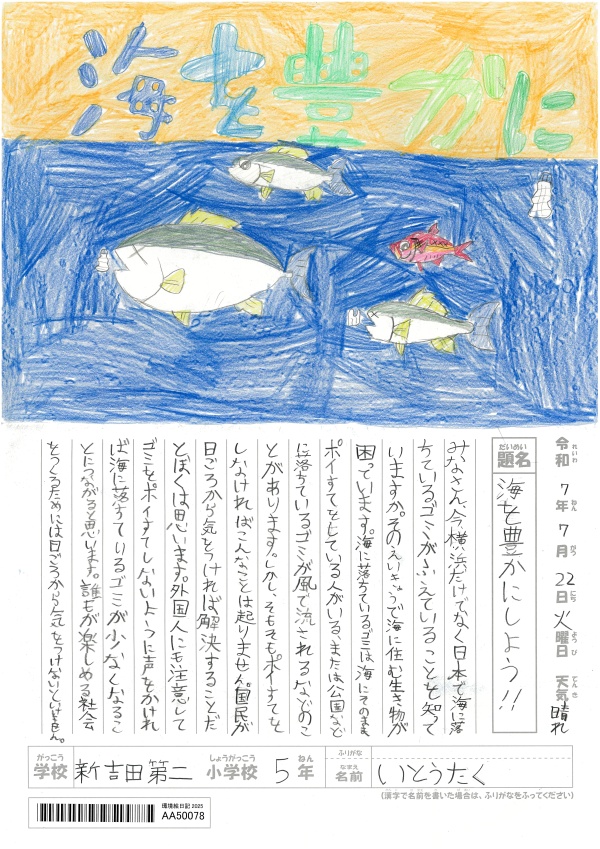 海を豊かに
令和7年7月22日火曜日 天気 晴れ
れいわ ねん がつ にち ようび てんき
だいめい
題名 海を豊かにしよう!!
みなさん、今、横浜だけでなく日本で海に落
ちているゴミがふえていることを知って
いますか。そのえいきょうで海に住む生き物が
困っています。海に落ちているゴミは海にそのまま
ポイすてをしている人がいる、または公園など
に落ちているゴミが風で流されるなどのこ
とがあります。しかし、そもそもポイすてを
しなければこんなことは起りません。国民が
日ごろから気をつければ解決することだ
とぼくは思います。外国人にも注意して
ゴミをポイすてしないように声をかけれ
ば海に落ちているゴミが少なくなるこ
とにつながると思います。誰もが楽しめる社会
をつくるためには日ごろから気をつけないといけません。
がっこう しょうがっこう ねん ふりがな なまえ
学校 新吉田第二 小学校 5年 名前 いとうたく
(漢字で名前を書いた場合は、ふりがなをふってください)
環境絵日記 2025
AA50078